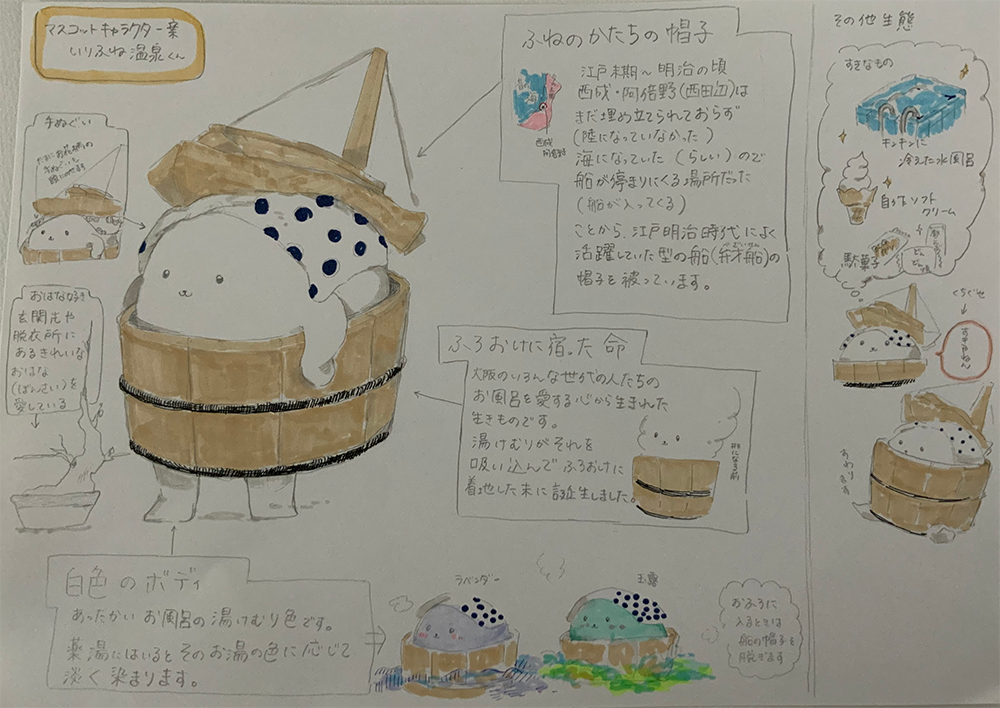 マスコットキャラクター案
いりふね温泉くん
手ぬぐい
手ぬぐいも
おはな好き
玄関先や
脱衣所に
あるきれいな
おはな
(ぼんさい)を
愛している
ふねのかたちの帽子
江戸末期〜明治の頃
西成・阿倍野(西田辺)は
まだ埋め立てられておらず
(陸になっていなかった)
海になっていた(らしい)ので
船が停まりにくる場所だった
(船が入ってくる)
ことから、江戸明治時代によく
活躍していた型の船(弁才船)の
帽子を被っています。
西成
阿倍野
ふろおけに宿った命
大阪のいろんな世代の人たちの
お風呂を愛する心から生まれた
生きものです。
湯けむりがそれを
吸い込んでふろおけに
着地した末に誕生しました。
形になる前
白色のボディ
あったかいお風呂の湯けむり色です。
薬湯にはいるとそのお湯の色に応じて
淡く染まります。
ラベンダー
玉露
おふろに
入るときは
船の帽子を
脱ぎます
その他生態
すきなもの
キンキンに
冷えた水風呂
自作ソフト
クリーム
駄菓子
どん
どん
焼
くちぐせ
すわり
ます